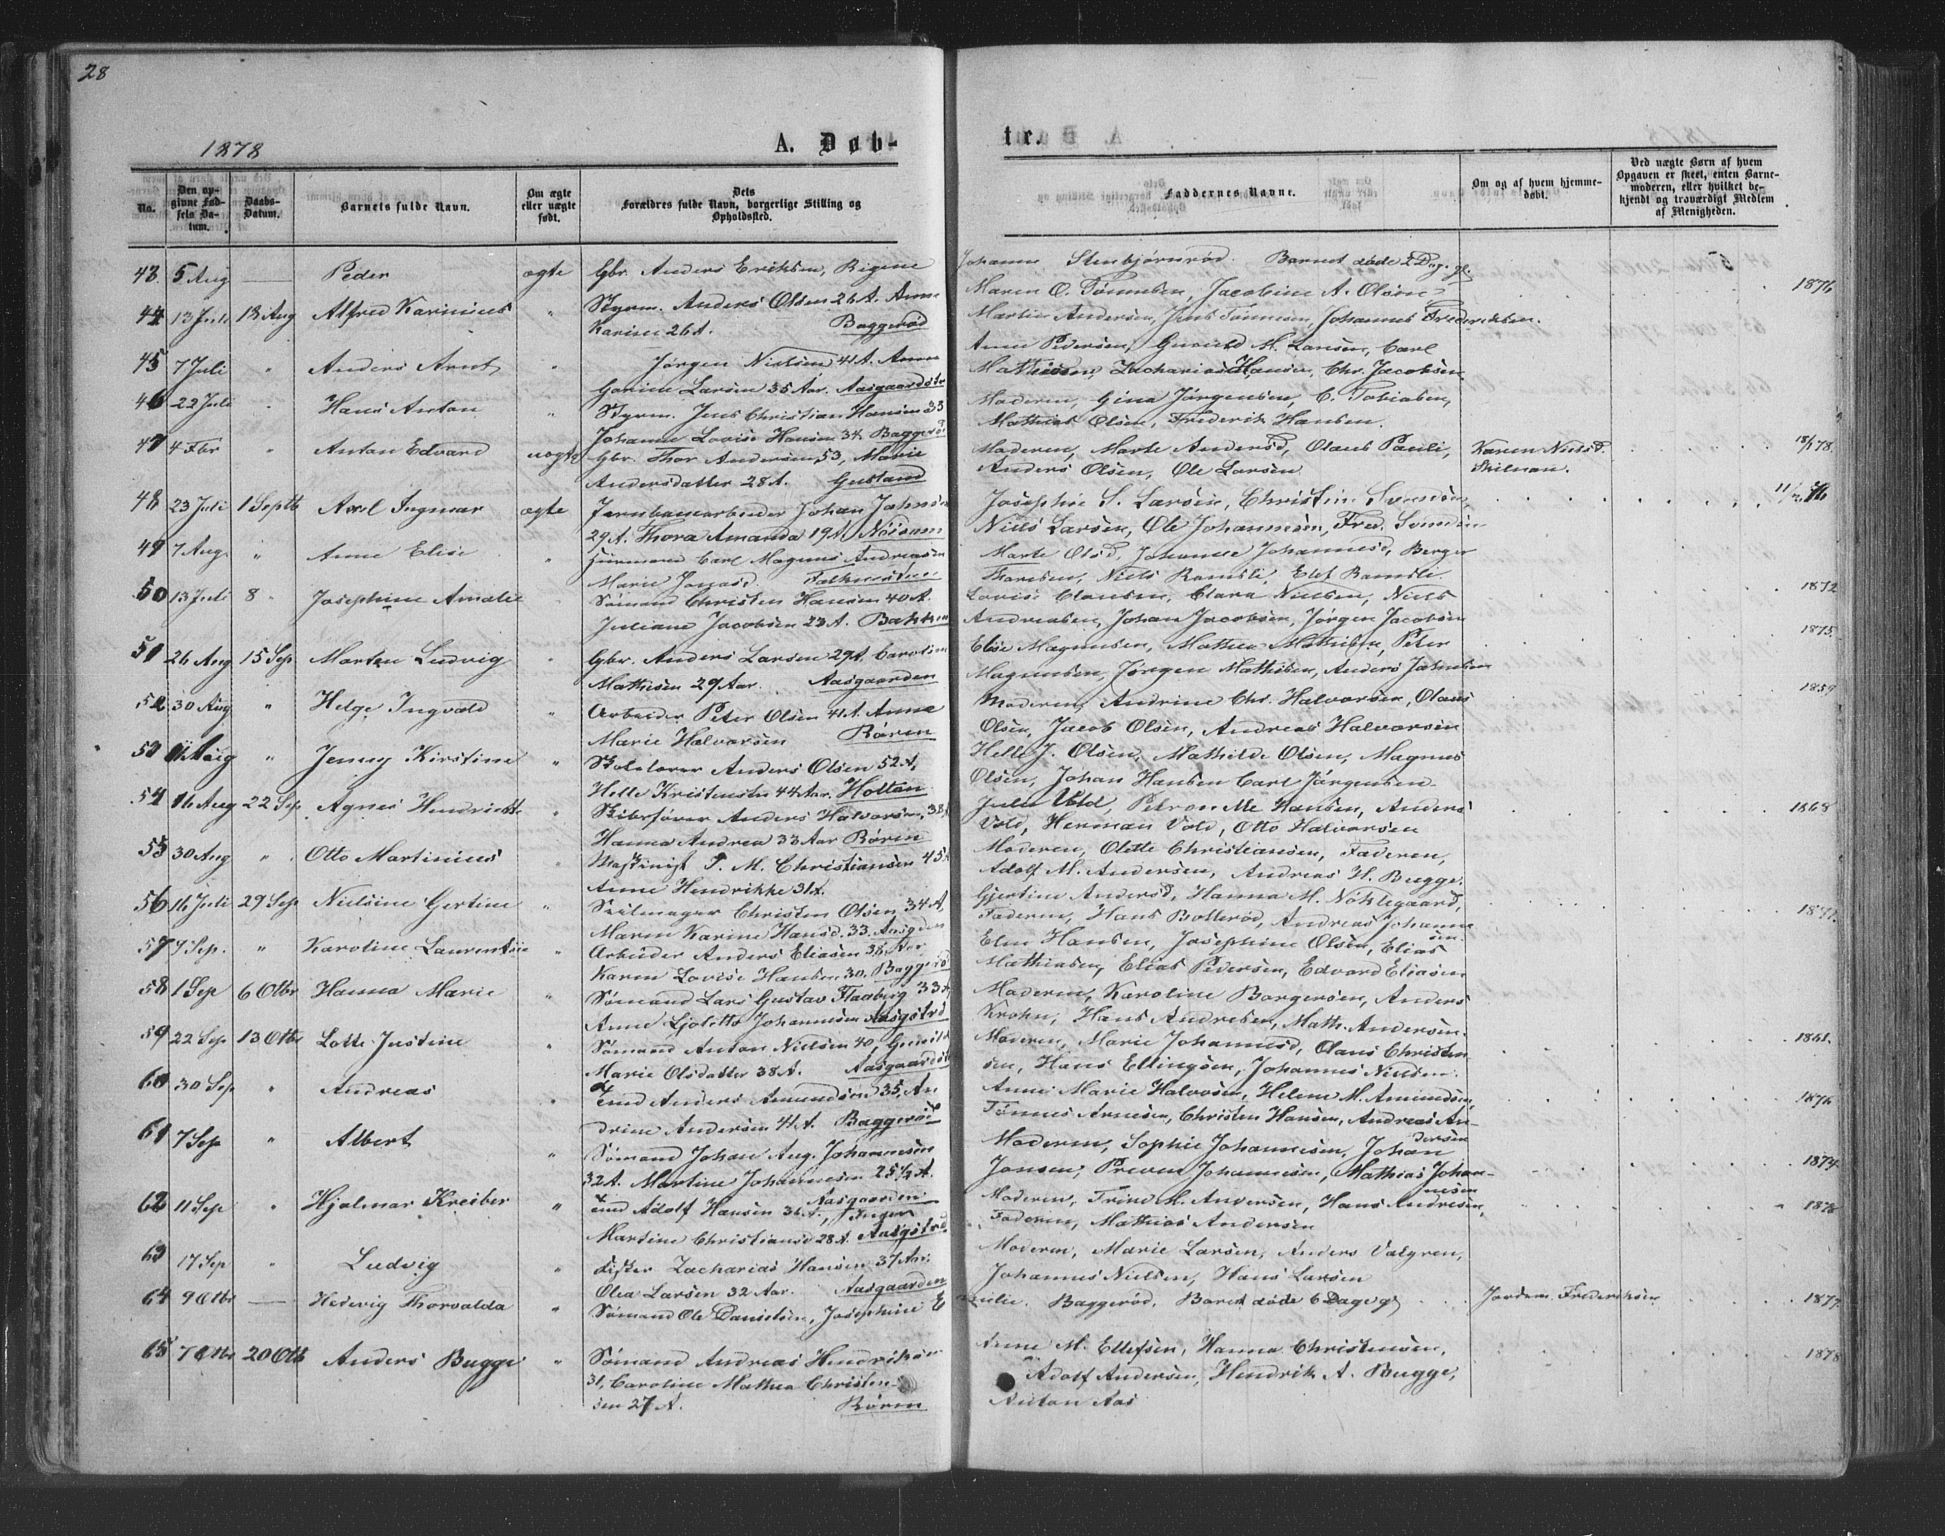 28
1878
A. Døb-
No.
Den op-
givne Fød-
sels Da-
tum.
Daabs-
Datum.
Barnets fulde Navn.
Om ægte
eller uægte
født.
Dets
Forældres fulde Navn, borgerlige Stilling og
Opholdssted.
43. 5 Aug — Peder ægte Gbr. Anders Eriksen, Rigene
44 13 Juli 18 Aug Alfred Karinius " Styrm. Anders Olsen 26 A. Anne
Karine 26 A. Baggerød
45 7 Juli " Anders Arnt " Jørgen Nielsen 41 A. Anne
Gorine Larsen 35 Aar. Aasgaardstr
46 22 Juli " Hans Anton " Styrm. Jens Christian Hansen 33
Johanne Lovise Hansen 34. Baggerød
47 4 Fbr " Anton Edvard uægte Gbr. Thor Andersen, 53, Marie
Andersdatter 28 A. Gusland
48 23 Juli 1 Septb Axel Ingmar ægte Jernbanearbeider Johan Johnsen
29 A. Thora Amanda 19 A.
49 7 Aug. " Anne Elise " Carl Magnus Andreasen
Marie
50 13 Juli 8 " Josephine Amalie Sømand Christen Hansen 40 A.
Juliane Jacobsen 23 A. Bakken
51 26 Aug 15 Sep Morten Ludvig " Gbr. Anders Larsen 29 A. Caroline
Mathisen 29 Aar. Aasgaarden
52 30 Aug " Helge Ingvald " Arbeider Peter Olsen 41 A. Anne
Marie Halvorsen Røren
53 Aug " Jenny Kirstine " Skolelærer Anders Olsen 52 A,
Helle Kristensen 44 Aar. Holtan
54 16 Aug 22 Sep. Agnes Hendriette " Skibsfører Anders Halvorsen, 38,
Hanna Andrea 33 Aar Røren
55 30 Aug " Otto Martinius " Maskinist T. M. Christiansen 45 A
Anne Hendrikke 31 A.
56 16 Juli 29 Sep Nielsine Gertine " Seilmager Christen Olsen 34 A,
Maren Karine Hansd. 33. Aasgden
57 9 Sep. " Karoline Laurentse " Arbeider Anders Eliasen 38 Aar
Karen Lovise Hansen 30. Baggerød
58 1 Sep 6 Otbr Hanna Marie " Sømand Lars Gustav Flaaberg 33 A,
Anne Ljolette Johannesen Aasgstrd
59 22 Sep 13 Otbr Lotte Justine " Sømand Anton Nielsen 40, Gunild
Marie Olsdatter 38 A. Aasgaardst
60 30 Sep " Andreas " Anders Amundsen 35, An
drine Andersen 41 A. Baggerød
61 7 Sep " Albert " Sømand Johan Aug. Johannesen
32 A. Martine Johannesen 25 1/2 A.
Aasgaarden
62 11 Sep " Hjalmar Kreiber " Adolf Hansen 31 A, Inger
Martine Christiansd 28 A. Aasgstrd
63 17 Sep " Ludvig " Fisker Zacharias Hansen 37 Aar,
Olea Larsen 32 Aar. Aasgaarden
64 9 Otbr — Hedvig Thorvalda " Sømand Ole Danielsen, Josephine E
65 7 Otbr 20 Otb Anders Bugge " Sømand Andreas Hendriksen
31, Caroline Mathea Christen-
sen 27 A. Røren
te.
Faddernes Navne.
Om og af hvem hjemme-
døbt.
Ved uægte Børn af hvem
Opgaven er skeet, enten Barne-
moderen, eller hvilket be-
kjendt og troværdigt Medlem
af Menigheden.
Johanne Stenbjørnrød. Barnet døde 2 Dag. gl.
Maren O. Tønnesen, Jacobine A. Olsen 1876
Martin Andersen, Jens Tønnesen, Johannes Frederiksen.
Anne Pedersen, Gunild M. Larsen, Carl
Mathisen, Zacharias Hansen, Chr. Jacobsen
Moderen, Gina Jørgensen, C. Tobiasen,
Mathias Olsen, Frederik Hansen.
Moderen, Marte Andersd, Olaus Pauli, Karen Nielsd. 18/1 78.
Anders Olsen, Ole Larsen
Josephine S. Larsen, Christine Svendsen,
Niels Larsen, Ole Johannesen, Fred. Svendsen
Marte Olsd, Johanne Johannesd, Berger
Thoresen, Niels Ramsli, Elef Ramsli.
Lovise Clausen, Clara Nielsen, Niels 1872
Andreasen, Johan Jacobsen, Jørgen Jacobsen
Elise Magnusen, Mathea Mathisen, Peter 1875.
Magnusen, Jørgen Mathisen, Anders Johnsen
Moderen, Andrine Chr. Halvorsen, Olaus 1859
Olsen, Jacob Olsen, Andreas Halvorsen
Helle J. Olsen, Mathilde Olsen, Magnus
Olsen, Johan Hansen Carl Jørgensen
Julie Vold, Petronelle Hansen, Anders 1868
Vold, Herman Vold, Otto Halvorsen
Moderen, Olette Christiansen, Faderen,
Adolf M. Andersen, Andreas H. Bugge.
Gjertine Andersd, Hanna M. Nøklegaard,
Faderen, Hans Bollerød, Andreas Johanne
sen.
Elen Hansen, Josephine Olsen, Elias
Mathiasen, Elias Pedersen, Edvard Eliasen
Moderen, Karoline Borgersen, Anders
Krohn, Hans Andresen, Math. Andersen.
Moderen, Marie Johannesd, Olaus Christen 1861.
sen, Hans Ellingsen, Johannes Nielsen.
Anne Marie Halvorsen, Helene M. Amundsen, 1876
Tønnes Arnesen, Christen Hansen, Andreas An-
dersen
Moderen, Sophie Johannesen, Johan
Jonsen, Preven Johannesen, Mathias Johan- 1874
nesen
Moderen, Trine M. Andersen, Hans Andresen, 1876
Faderen, Mathias Andersen
Moderen, Marie Larsen, Anders Valgren,
Johannes Nielsen, Hans Larsen
Baggerød. Barnet døde 6 Dage gl Jordem. Frederiksen 1877.
Anne M. Ellefsen, Hanna Christensen, 1878
Adolf Andersen, Hendrik A. Bugge,
Anton Aas